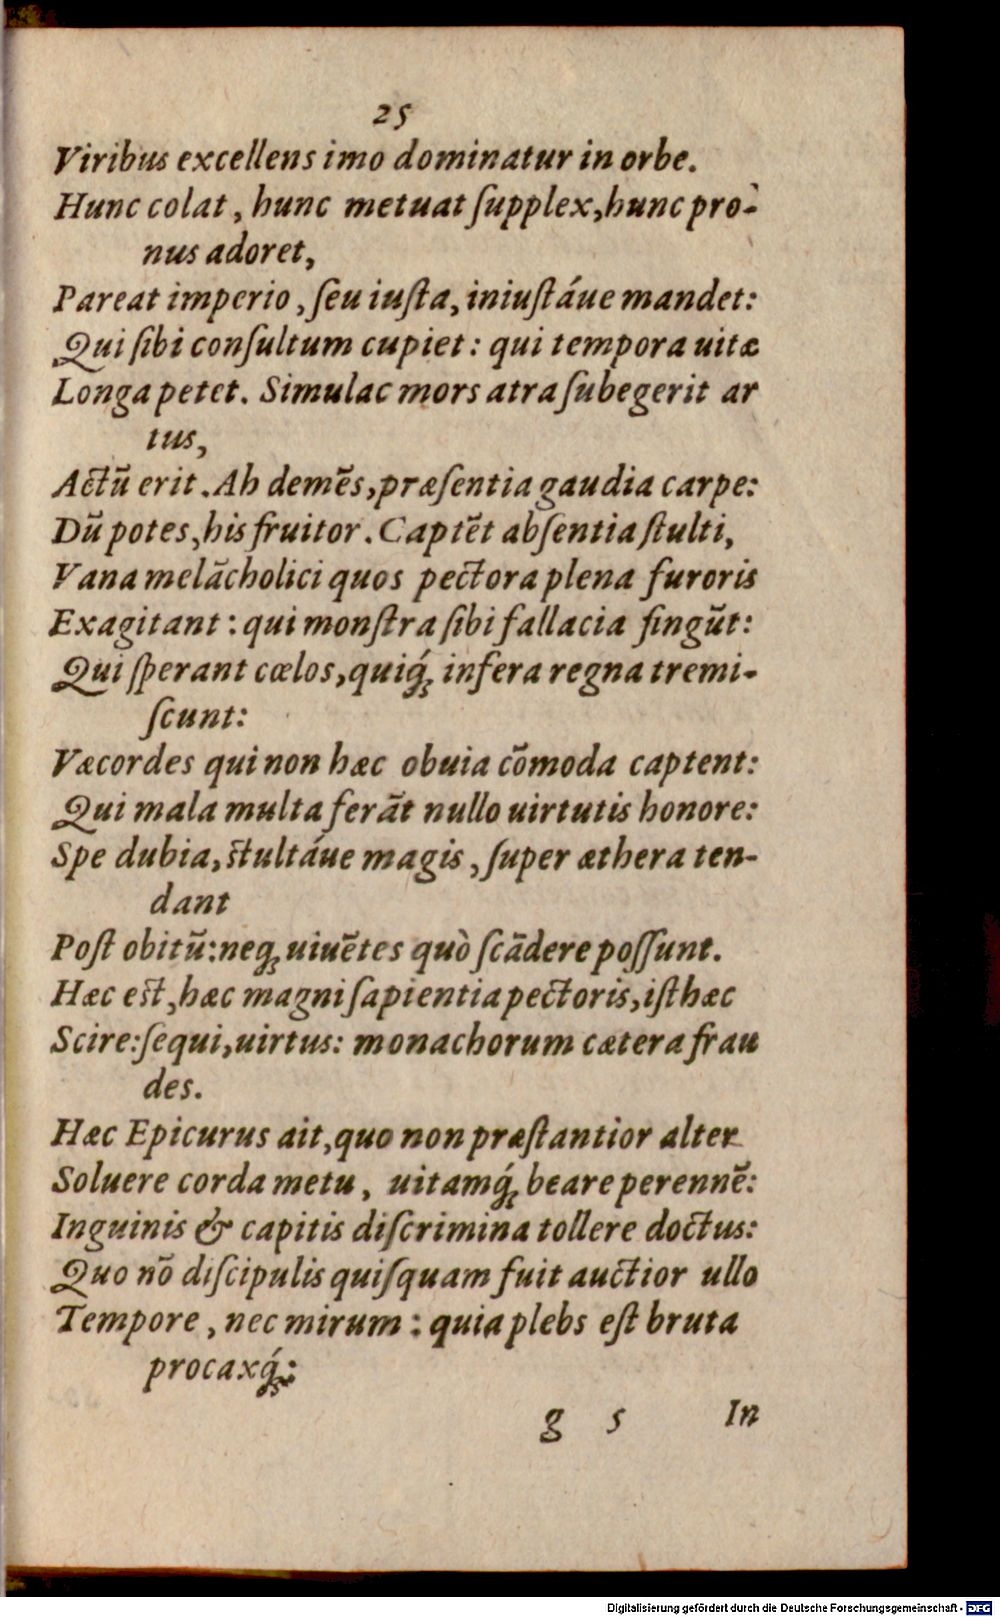 25
Viribus excellens imo dominatur in orbe.
Hunc colat, hunc metuat ſupplex, hunc pro-
nus adoret,
Pareat imperio, ſeu iuſta, iniuſtáue mandet:
Qui ſibi conſultum cupiet: qui tempora uitæ
Longa petet. Simulac mors atra ſubegerit ar
tus,
Actū erit. Ah demēs, præſentia gaudia carpe:
Dū potes, his fruitor. Captēt abſentia ſtulti,
Vana melācholici quos pectora plena furoris
Exagitant: qui monſtra ſibi fallacia fingūt:
Qui ſperant cœlos, quiq́; infera regna tremi-
ſcunt:
Væcordes qui non hæc obuia cōmoda captent:
Qui mala multa ferāt nullo uirtutis honore:
Spe dubia, ſtultáue magis, ſuper æthera ten-
dant
Poſt obitū: neq; uiuētes quò ſcādere poſſunt.
Hæc eſt, hæc magni ſapientia pectoris, iſthæc
Scire: ſequi, uirtus: monachorum cætera frau
des.
Hæc Epicurus ait, quo non præſtantior alter
Soluere corda metu, uitamq́; beare perennē:
Inguinis & capitis diſcrimina tollere doctus:
Quo nō diſcipulis quiſquam fuit auctior ullo
Tempore, nec mirum: quia plebs eſt bruta
procaxq́;:
g 5 In
Digitalisierung gefördert durch die Deutsche Forschungsgemeinschaft - DFG